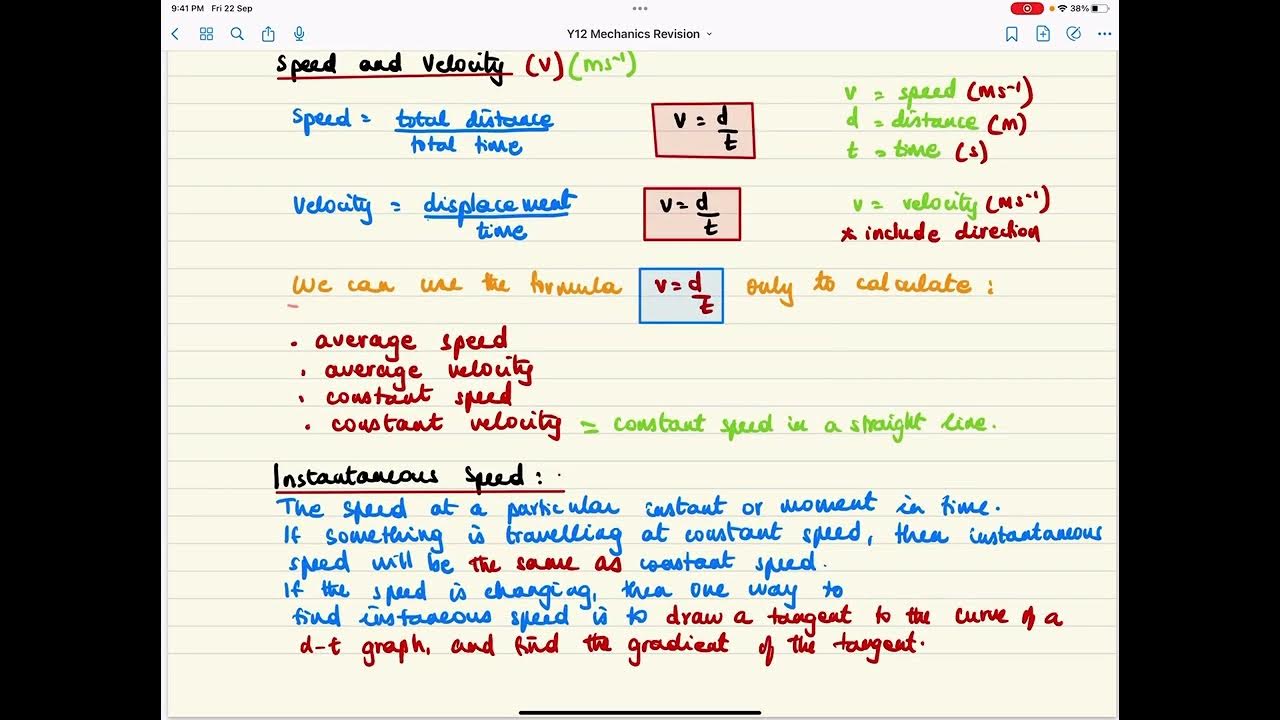 9:41 PM Fri 22 Sep
38%
Y12 Mechanics Revision
Speed and Velocity (v) (ms⁻¹)
Speed = total distance / total time
v = d/t
v = speed (ms⁻¹)
d = distance (m)
t = time (s)
Velocity = displacement / time
v = d/t
v = velocity (ms⁻¹)
* include direction
We can use the formula v = d/t only to calculate :
• average speed
• average velocity
• constant speed
• constant velocity = constant speed in a straight line.
Instantaneous Speed :
The speed at a particular instant or moment in time.
If something is travelling at constant speed, then instantaneous
speed will be the same as constant speed.
If the speed is changing, then one way to
find instaneous speed is to draw a tangent to the curve of a
d-t graph, and find the gradient of the tangent.